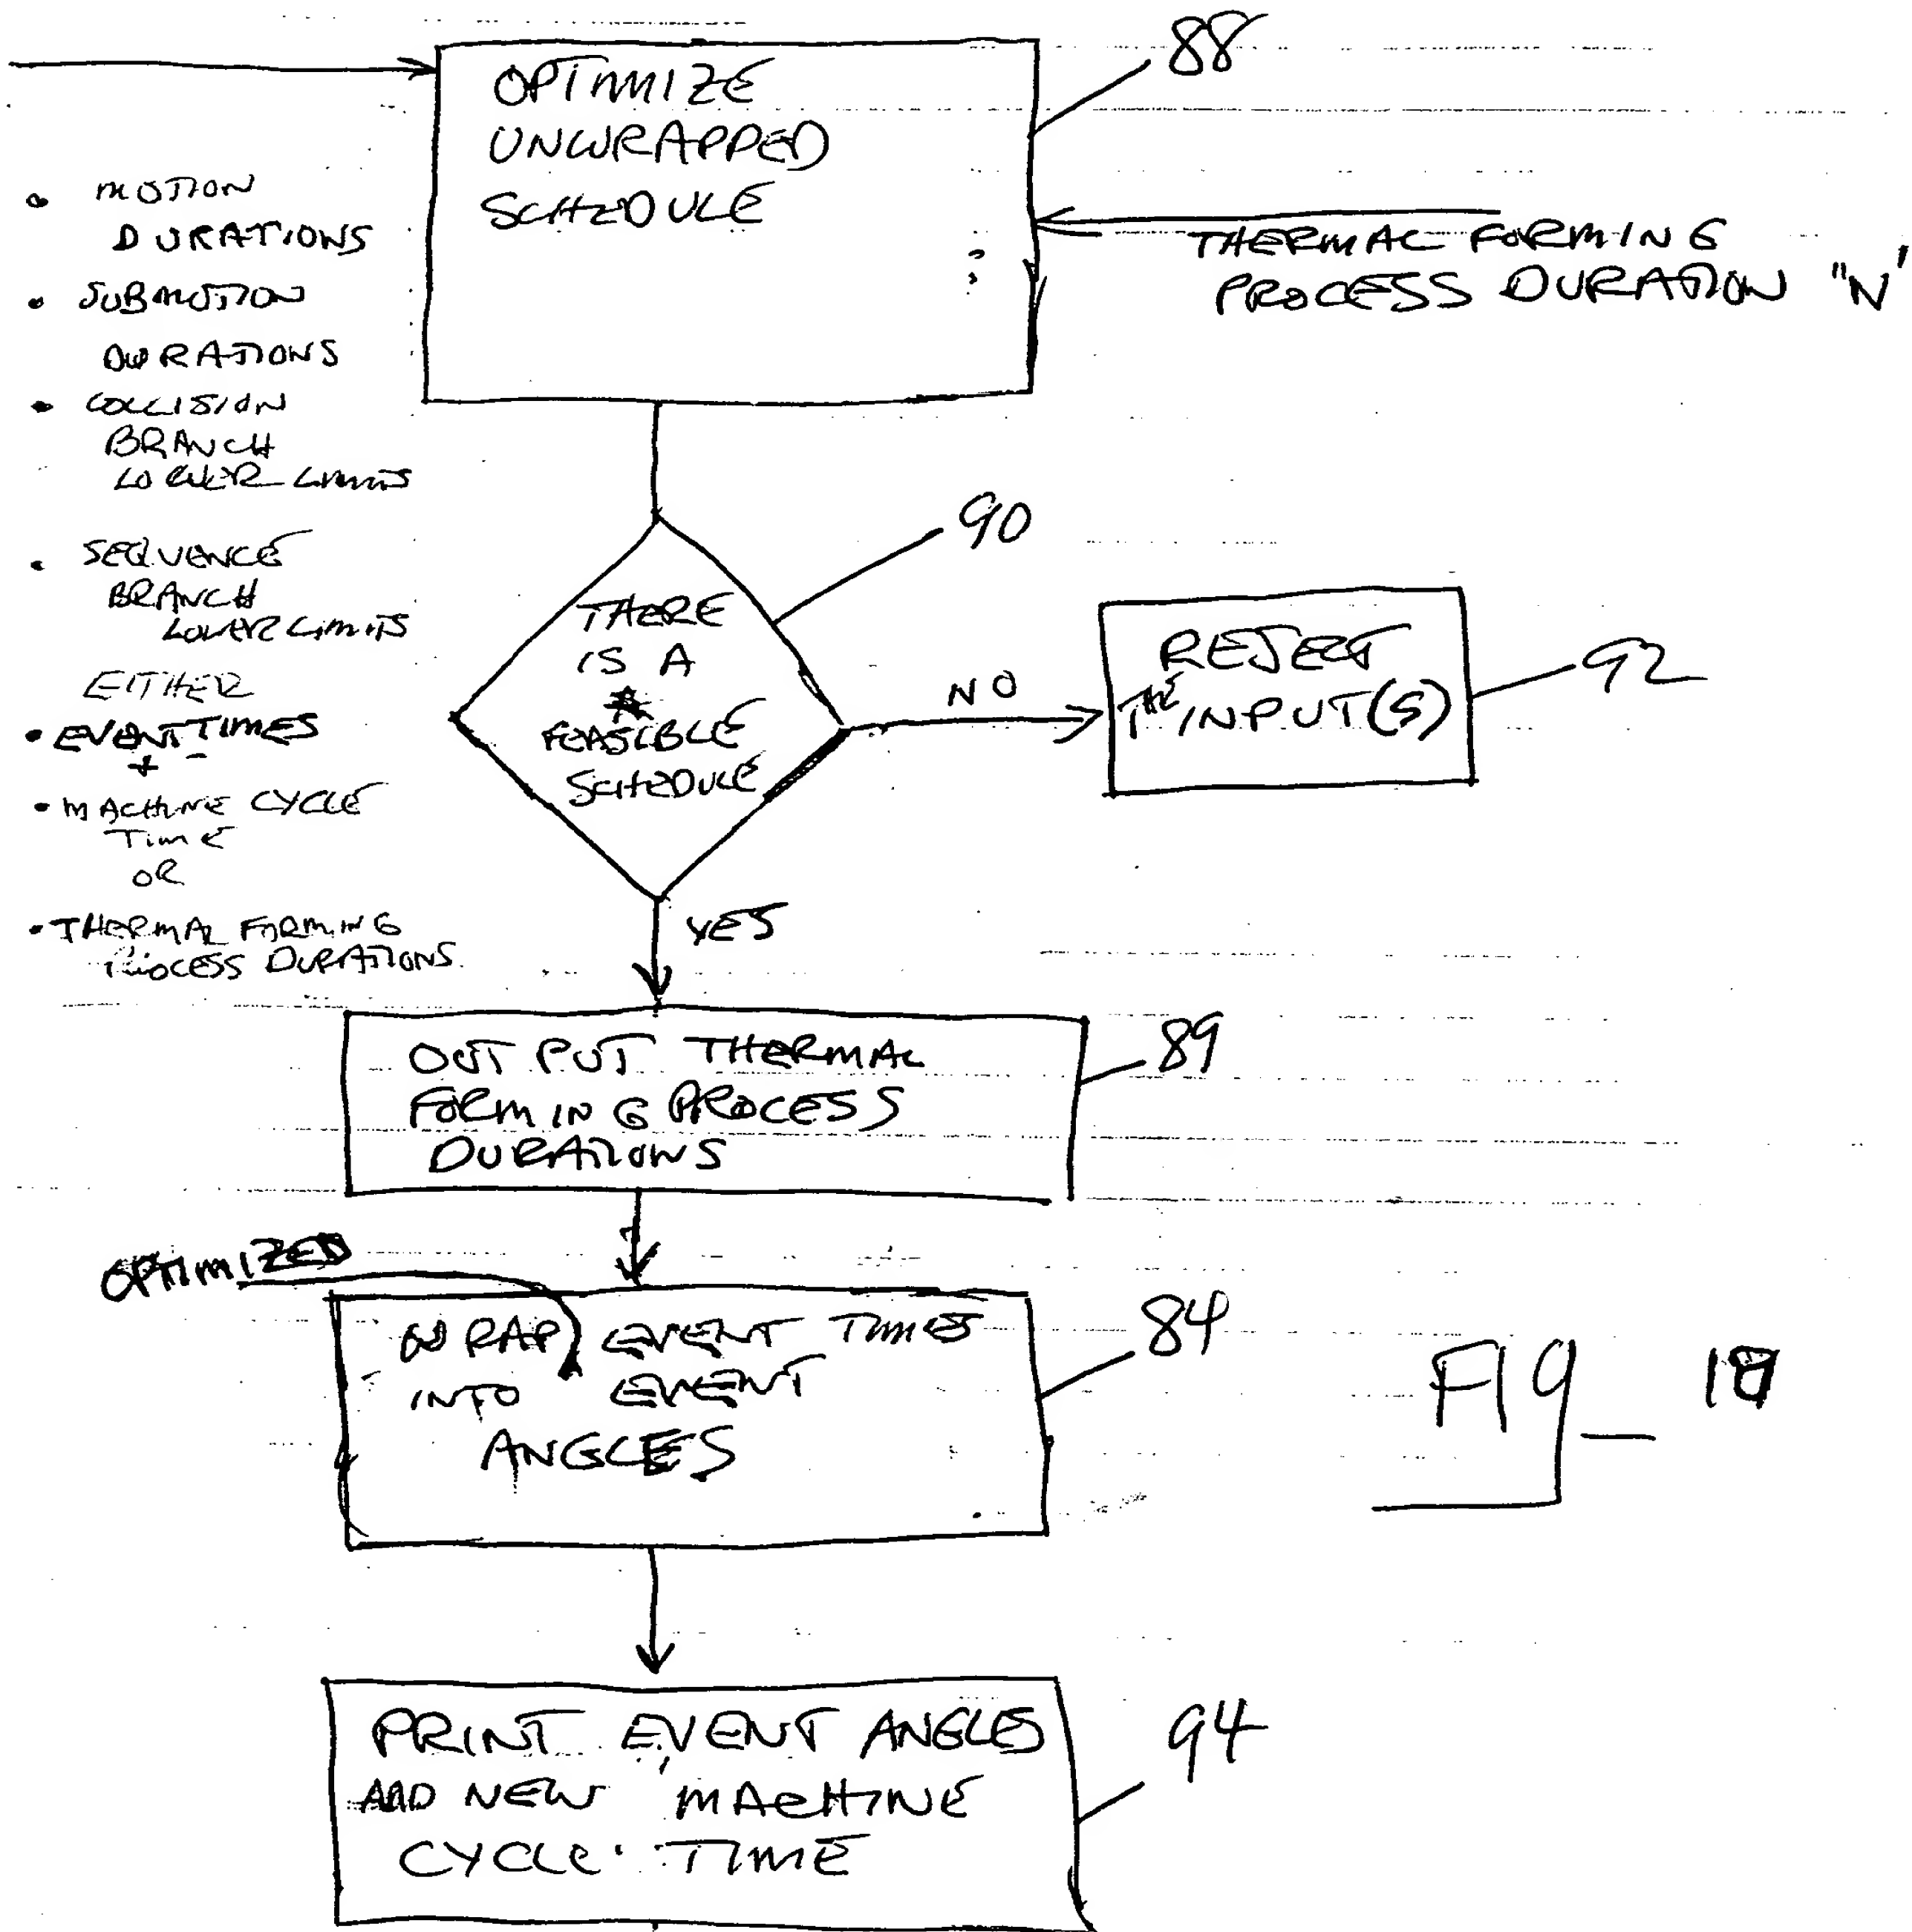 88
OPTIMIZE
UNWRAPPED
SCHEDULE
• MOTION
DURATIONS
• SUBMOTION
DURATIONS
• COLLISION
BRANCH
LOWER LIMITS
• SEQUENCE
BRANCH
LOWER LIMITS
EITHER
• EVENT TIMES
+
• MACHINE CYCLE
TIME
OR
• THERMAL FORMING
PROCESS DURATIONS
THERMAL FORMING
PROCESS DURATION "N'
90
THERE
IS A
FEASIBLE
SCHEDULE
NO
REJECT
THE INPUT(S)
92
YES
OUT PUT THERMAL
FORMING PROCESS
DURATIONS
89
OPTIMIZED
WRAP EVENT TIMES
INTO EVENT
ANGLES
84
FIG
PRINT EVENT ANGLES
AND NEW MACHINE
CYCLE TIME
94